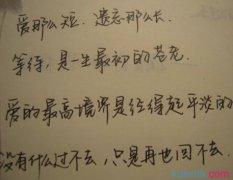 爱那么短.遗忘那么长.
等待,是一生最初的苍老.
爱的最高境界是经得起平淡的
没有什么过不去,只是再也回不去.